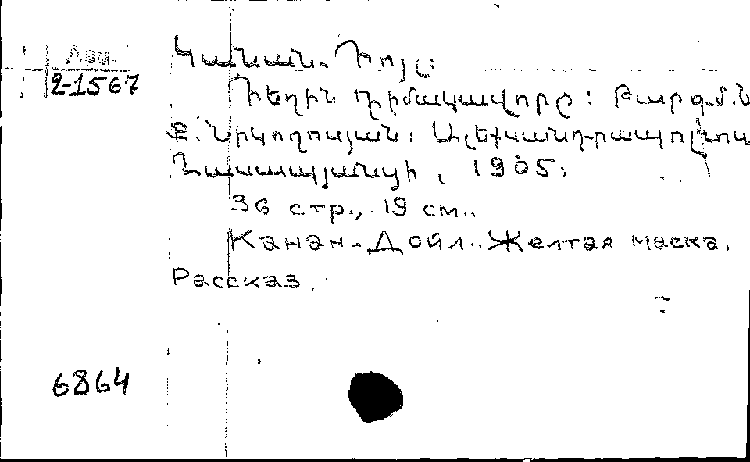 2-1567
Կանան-Դոյլ:
Դեղին դիմակավորը: Թարգմ.
Ք. Նիկողոսյան: Ալեքսանդրապոլ,
1905:
36 стр., 19 см.
Канан-Дойл. Желтая маска.
Рассказ.
6864